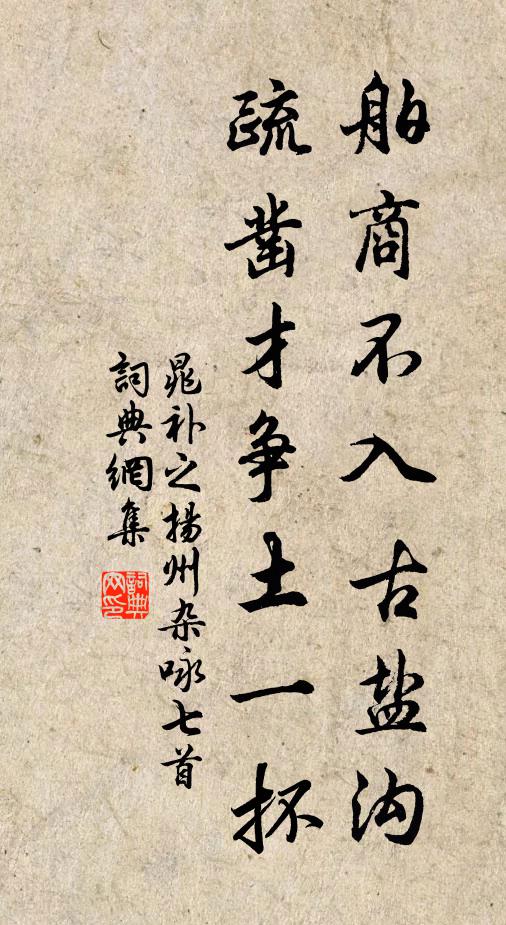 舶商不入古盐沟
疏凿才争土一抔
晁补之揚州杂咏七首
詞典網集
詞典網印